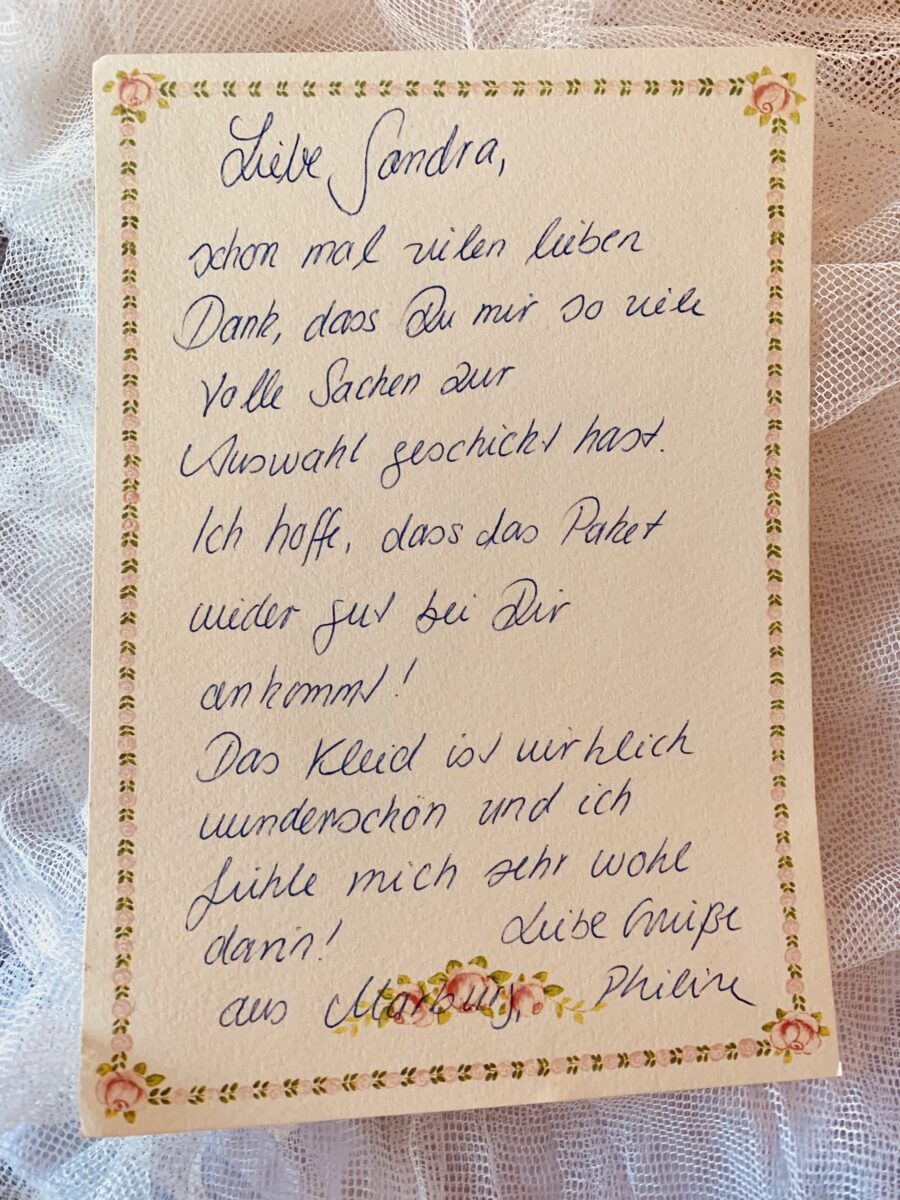 Liebe Sandra,
schon mal vielen lieben
Dank, dass Du mir so viele
tolle Sachen zur
Auswahl geschickt hast.
Ich hoffe, dass das Paket
wieder gut bei Dir
ankommt!
Das Kleid ist wirklich
wunderschön und ich
fühle mich sehr wohl
darin! Liebe Grüße
aus Marburg, Philine